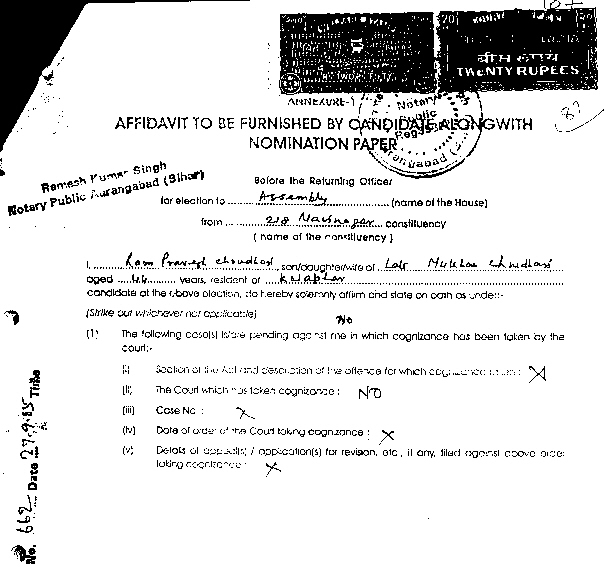 20
बीस रुपये
TWENTY RUPEES
ANNEXURE-1
Notary
Public
AFFIDAVIT TO BE FURNISHED BY CANDIDATE ALONGWITH
NOMINATION PAPER
Ramesh Kumar Singh
Notary Public Aurangabad (Bihar)
Before the Returning Officer
for election to Assembly (name of the House)
from 218 Navinagar constituency
( name of the constituency )
I, Ram Pravesh Choudhari, son/daughter/wife of Late Choudhari
aged 44 years, resident of
candidate at the above election, do hereby solemnly affirm and state on oath as under:-
(Strike out whichever not applicable)
No
(1) The following case(s) is/are pending against me in which cognizance has been taken by the
court:-
(i) Section of the Act and description of the offence for which cognizance taken : X
(ii) The Court which has taken cognizance : NO
(iii) Case No. : X
(iv) Date of order of the Court taking cognizance : X
(v) Details of appeal(s) / application(s) for revision, etc., if any, filed against above order
taking cognizance : X
No. 662 Date 27.9.05 Time